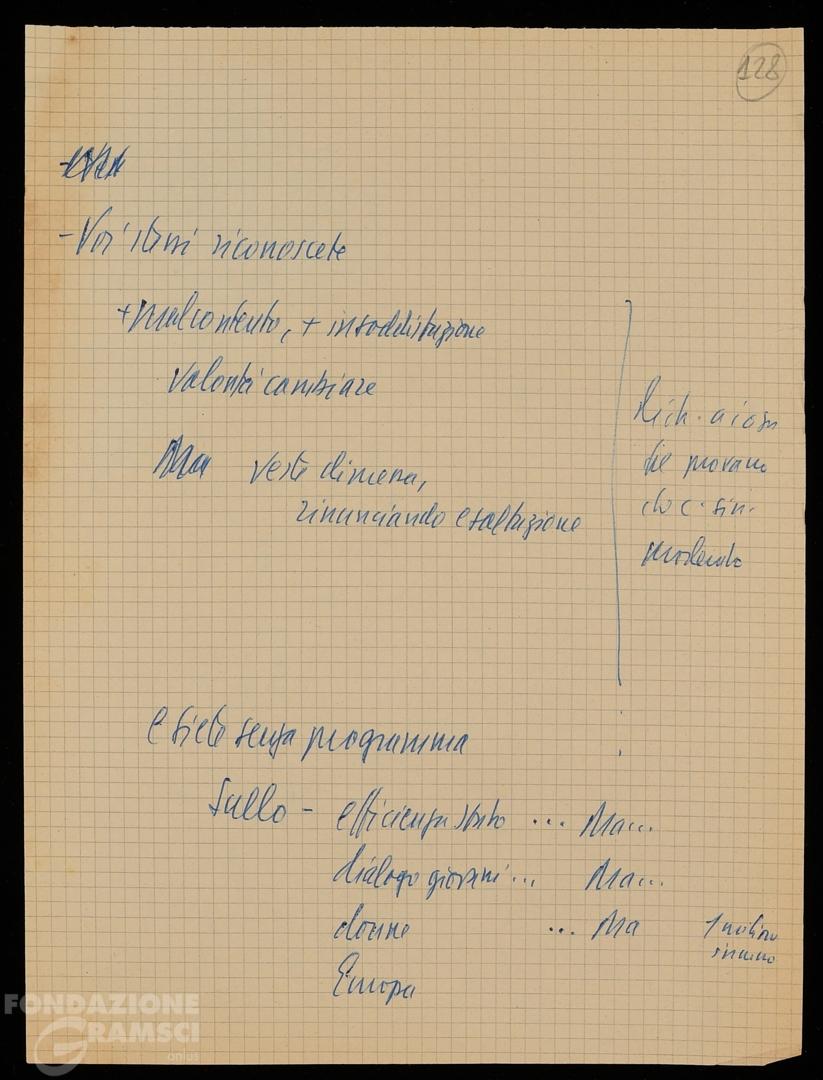 128
- Voi stessi riconoscete
+ malcontento, + insoddisfazione
volontà cambiare
Ma veste dimessa,
rinunciando esaltazione
che provano
e siete senza programma
Sullo - efficienza stato ... Ma...
dialogo giovani ... Ma...
donne ... Ma 1 milione
Europa
FONDAZIONE
GRAMSCI
onlus